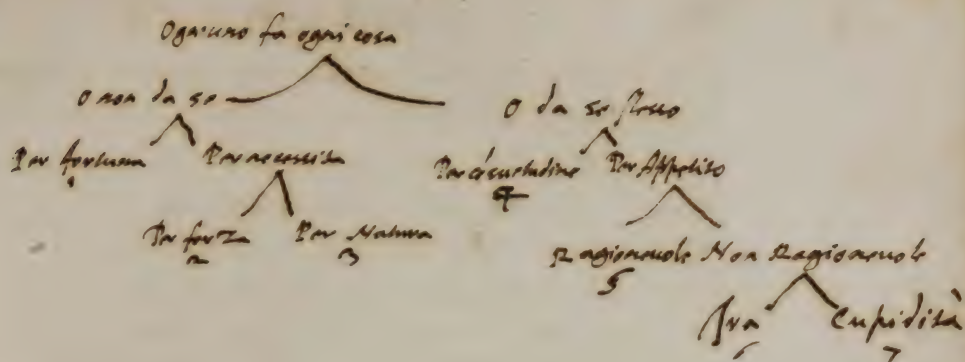 Ogn'uno fa ogni cosa
O non da se
O da se stesso
Per fortuna
Per necessita
Per cōsuetudine
Per Appetito
1
4
Per forza
Per Natura
2
3
Ragionevole
Non Ragionevole
5
Ira
Cupidità
6
7